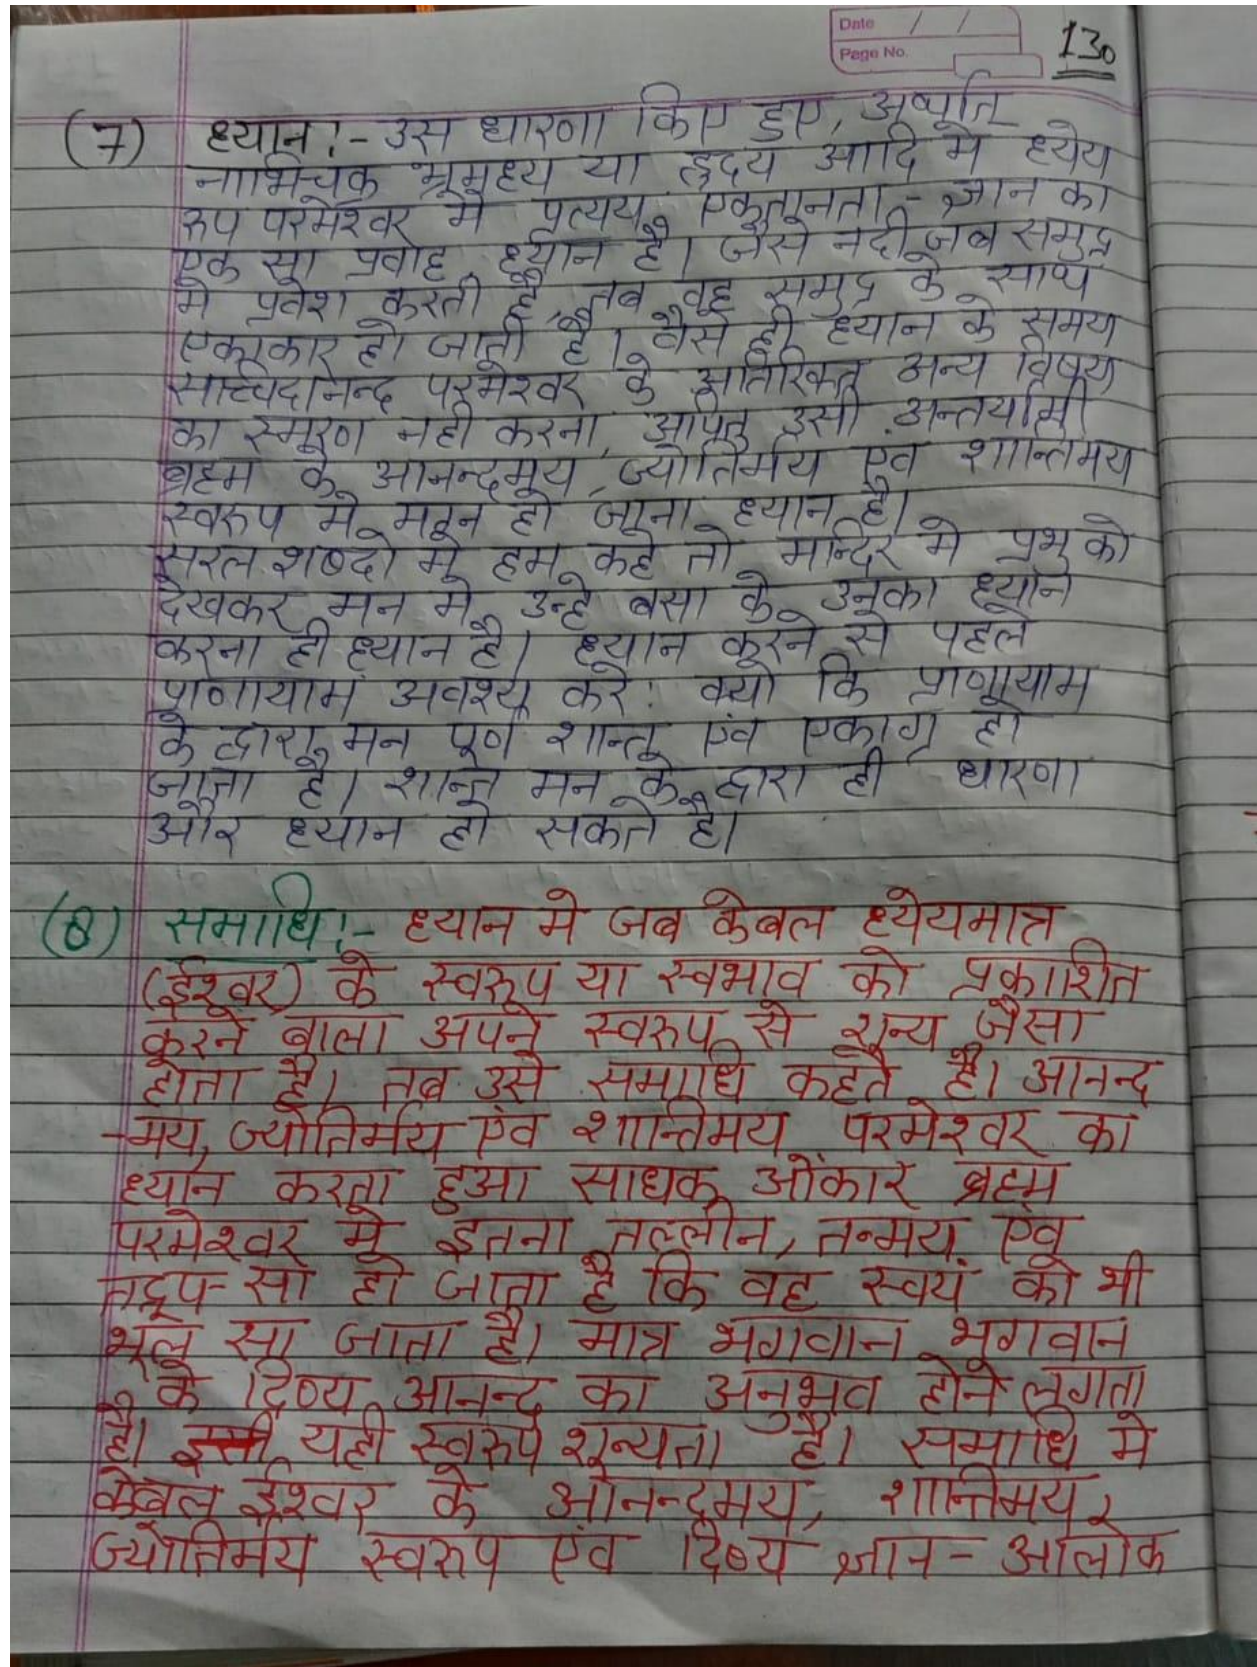 Date / /
Page No.
130
(7) ध्यान :- उस धारणा किए हुए,
नाभिचक्र भ्रूमध्य या ह्रदय आदि मे ध्येय
रुप परमेश्वर मे प्रत्यय एकतानता - ज्ञान का
एक सा प्रवाह ध्यान है। जैसे नदी जब समुद्र
मे प्रवेश करती है, तब वह समुद्र के साथ
एकाकार हो जाती है। वैसे ही ध्यान के समय
सच्चिदानन्द परमेश्वर के अतिरिक्त अन्य विषय
का स्मरण नही करना, अपितु उसी अन्तर्यामी
ब्रह्म के आनन्दमय, ज्योतिर्मय एंव शान्तिमय
स्वरुप मे मग्न हो जाना ध्यान है।
सरल शब्दो मे हम कहे तो मन्दिर मे प्रभु को
देखकर मन मे उन्हे बसा के उनका ध्यान
करना ही ध्यान है। ध्यान करने से पहले
प्राणायाम अवश्य करे। क्यो कि प्राणायाम
के द्वारा मन पूर्ण शान्त एंव एकाग्र हो
जाता है। शान्त मन के द्वारा ही धारणा
और ध्यान हो सकते है।
(8) समाधि :- ध्यान मे जब केबल ध्येयमात्र
(ईश्वर) के स्वरूप या स्वभाव को प्रकाशित
करने बाला अपने स्वरुप से शून्य जैसा
होता है। तब उसे समाधि कहते है। आनन्द
-मय, ज्योतिर्मय एंव शान्तिमय परमेश्वर का
ध्यान करता हुआ साधक ओंकार ब्रह्म
परमेश्वर मे इतना तल्लीन, तन्मय एंव
तद्रूप-सा हो जाता है कि वह स्वयं को भी
भूल सा जाता है। मात्र भगवान भगवान
के दिव्य आनन्द का अनुभव होने लगता
है। इसी यही स्वरुप शून्यता है। समाधि मे
केबल ईश्वर के आनन्दमय, शान्तिमय,
ज्योतिर्मय स्वरुप एंव दिव्य ज्ञान - आलोक